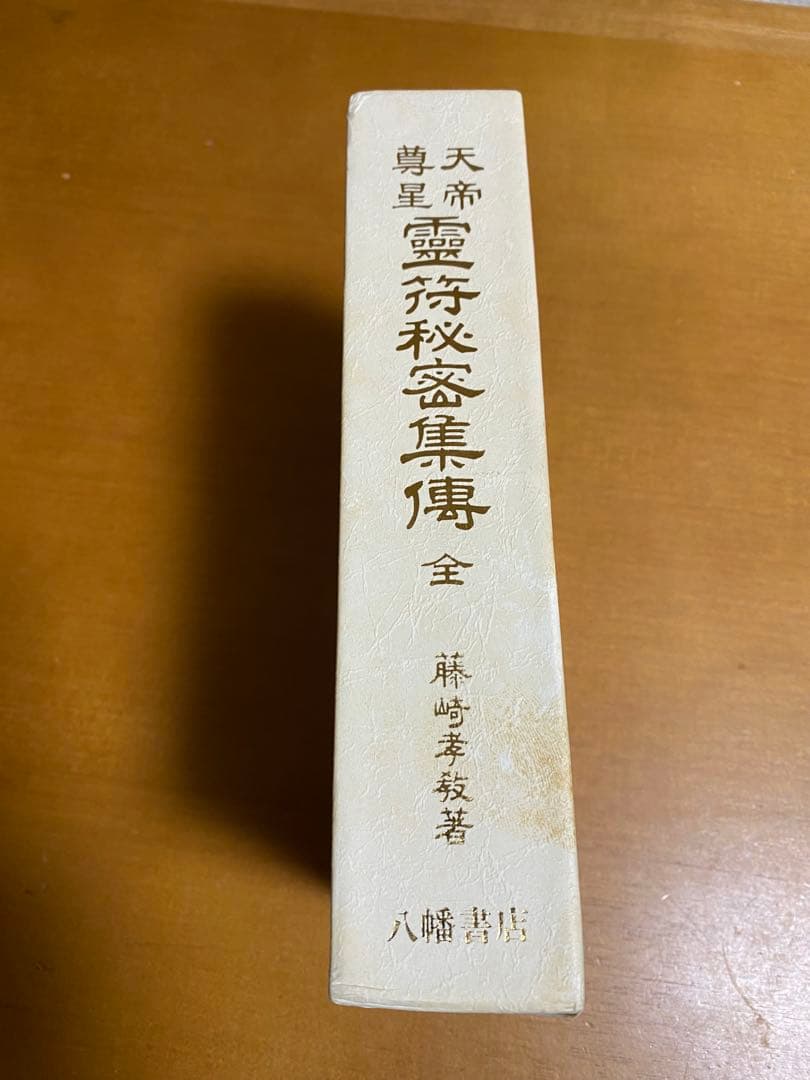 天帝
尊星
靈符秘密集傳 全
藤崎孝敎著
八幡書店